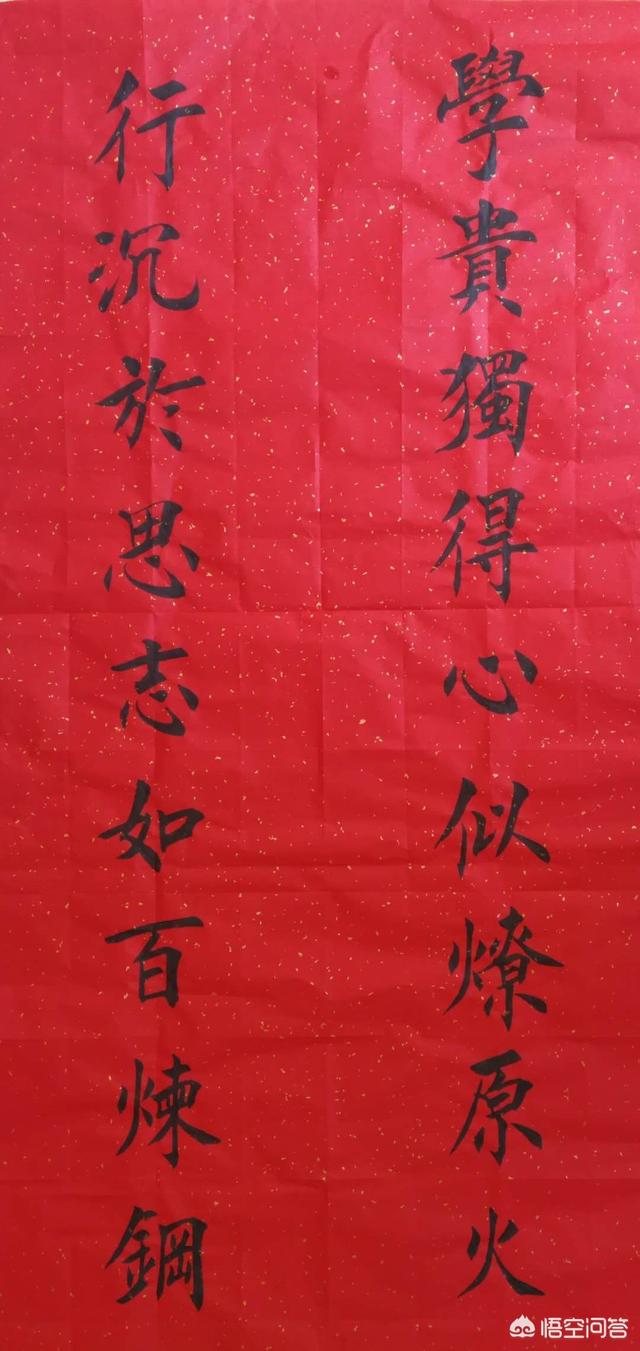 學貴獨得心似燎原火
行沉於思志如百煉鋼
悟空问答